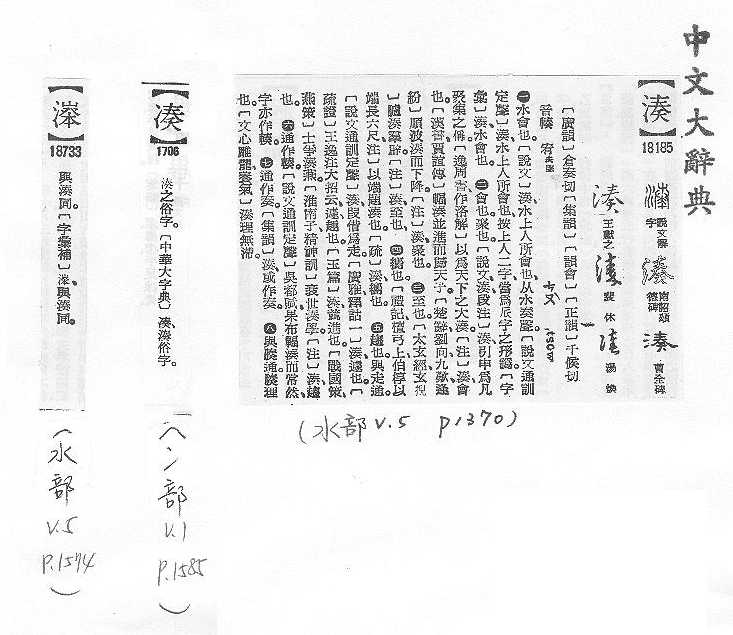 中文大辭典
【湊】
18185
說文解字
南詔頌德碑
曹全碑
王獻之
裴休
湯煥
〔廣韻〕倉奏切〔集韻〕〔韻會〕〔正韻〕千候切
音輳 宥
ㄘㄡ
tsow
㊀水會也。〔說文〕湊、水上人所會也、从水奏聲。〔說文通訓
定聲〕湊、水上人所會也、按上人二字當爲𠂢字之形譌。〔字
彙〕湊、水會也。㊁會也、聚也。〔說文湊段注〕湊、引申爲凡
聚集之偁。〔逸周書作洛解〕以爲天下之大湊。〔注〕湊、會
也。〔漢書賈誼傳〕輻湊並進而歸天子。〔楚辭劉向九歎逢
紛〕順波湊而下降。〔注〕湊、聚也。㊂至也。〔太玄經玄
湊〔注〕湊、至也。㊃嚮也。〔禮記檀弓上〕伯椁以
端長六尺。〔注〕以端題湊也。〔疏〕湊、嚮也。㊄趨也、與走通。
〔說文通訓定聲〕湊、叚借爲走。〔廣雅釋詁一〕湊、遠也。〔
疏證〕王逸注大招云、遽、趣也。〔玉篇〕湊、競進也。〔戰國策、
燕策〕士爭湊燕。〔淮南子精神訓〕衰世湊學。〔注〕湊、趨
也。㊅通作輳。〔說文通訓定聲〕吳都賦、果布輻湊而常然、
字亦作輳。㊆通作奏。〔集韻〕湊、或作奏。㊇與腠通、腠理
也。〔文心雕龍養氣〕湊理無滯。
(水部 v.5 p1370)
【凑】
1706
湊之俗字。〔中華大字典〕凑、湊俗字。
(冫部 v.1 p.1585)
18733
與湊同。〔字彙補〕、與湊同。
(水部 v.5 p.1574)